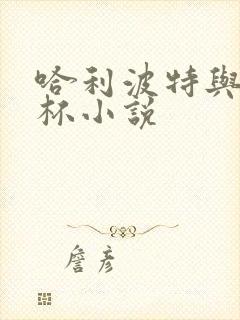 哈利波特與
杯小說
詹彥